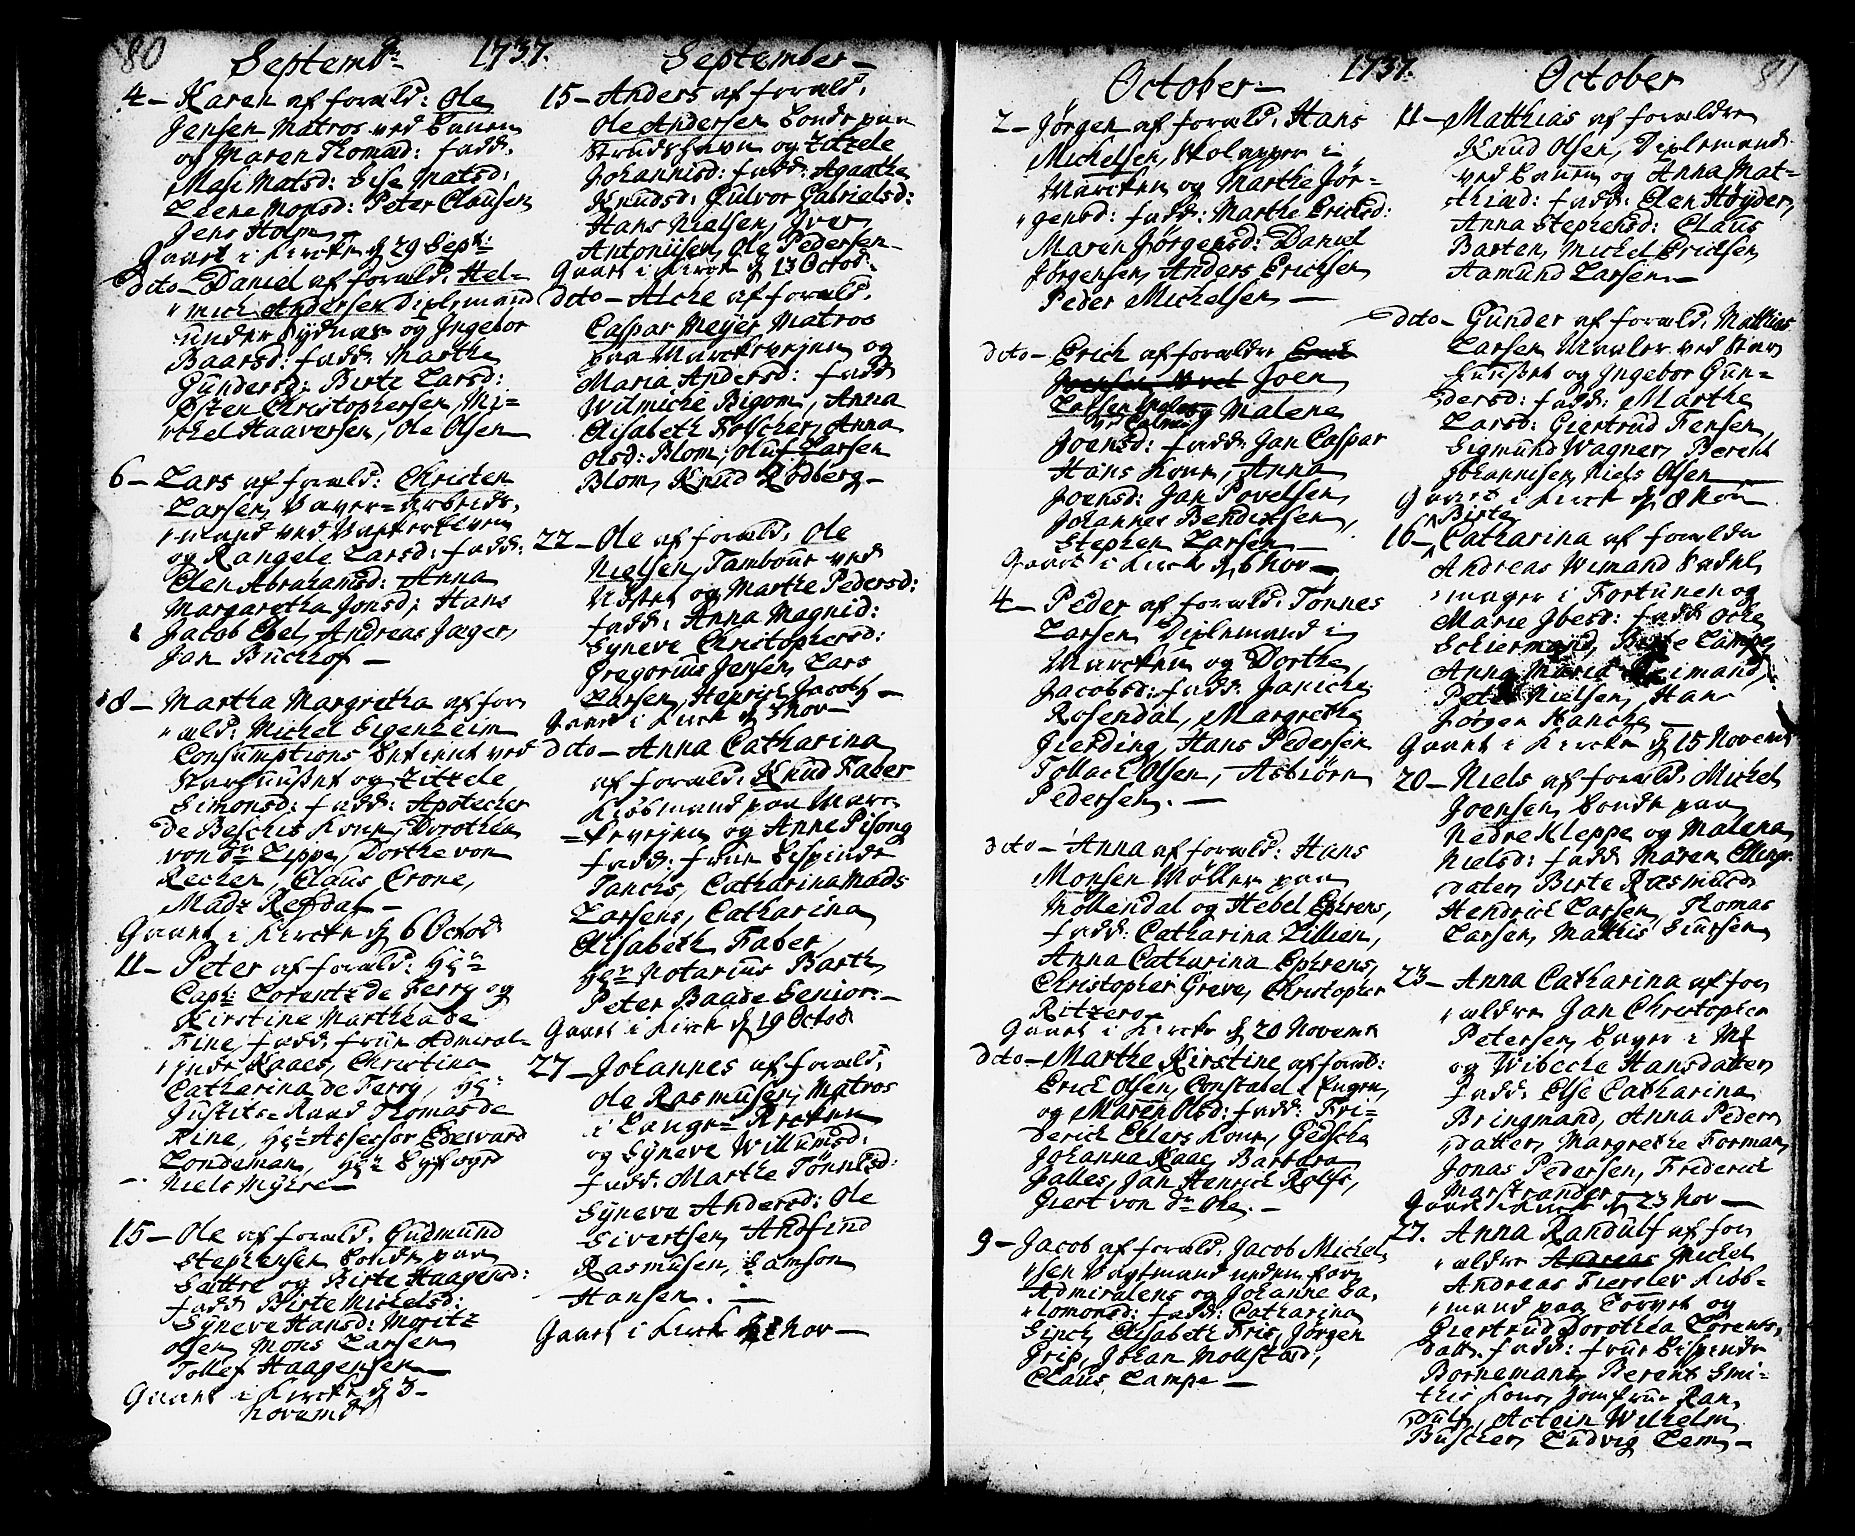 80
Septembr 1737.
4 – Karen af foræld: Ole
Jensen Matros ved
og Maren Thomæd: fadd:
Masi Matsd: Lise Matsd:
Leene Monsd: Peter Clausen
Jens Holm
Gaaet i Kircke d 29 Sept:
Dito – Daniel af foræld: Hel-
mich Andersen Dieplemand
under Sydnæs og Ingebor
Baarsd: fadd: Marthe
Gundersd: Birte Larsd:
Esten Christophersen, Mi-
chel Haaversen, Ole Olsen
6 – Lars af foræld: Christen
Larsen, Vaner-Arbeids-
mand ved
og Rangele Larsd: fadd:
Elen Abrahamsd: Anna
Margaretha Jonsd: Hans
Jacob Ebel, Andreas Jæger,
Jan Buchhof –
8 – Martha Margretha af for
æld: Michel Eigenheim
Consumptions betient ved
og Zitzele
Simonsd: fadd: Apotecher
de Besches Kone, Dorothea
von der Lippe, Dorthe von
Recken, Claus Crone,
Madz Refdal –
Gaaet i Kircke d 6 Octob
11 – Peter af foræld: Hr
Capt: Lorentz de Ferry og
Kirstine Marthea de
Fine, fadd: frue Admiral-
inde Kaaes, Christina
Catharina de Ferry, Hr
Justits-Raad Thomas de
Fine, Hr Assessor Edeward
Londeman, Hr Byfoged
Niels Myhre –
15 – Ole af foræld: Gudmund
Stephensen bonde paa
Sættre og Birte Haagensd:
fadd Birte Michelsd:
Syneve Hansd: Moritz
Olsen, Mons Larsen
Tollef Haagensen
Gaaet i Kircke d 3 –
Novembr
September –
15 – Anders af foræld:
Ole Andersen bonde paa
Strudshavn og Zitzele
Johannisd: fadd: Agaathe
Knudsd: Gulvor Gabrielsd:
Hans Nielsen, Iver
Antonisen, Ole Pedersen
Gaaet i Kirck d 13 Octob:
Dito – Alche af foræld:
Caspar Meyer Matros
paa Marckevejen og
Maria Andersd: fadd
Wilmiche Bigom, Anna
Elisabeth Fölscher, Anna
Olsd: Blom, Oluf Larsen
Blom, Knud Rödberg –
22 – Ole af foræld: Ole
Nielsen, Tambour ved
Nöstet og Marthe Pedersd:
fadd: Anna Magnid:
Syneve Christophersd:
Gregorius Jensen, Lars
Larsen, Henrich Jacobs –
Gaaet i Kirck d 3 Nov –
Dito – Anna Catharina
af foræld: Knud Faber
Kiöbmand paa Marc
kevejen og Anne Pisong
fadd: frue Bispinde
Tanche, Catharina Mads
Larsens, Catharina
Elisabeth Faber
Hr Notarius Barth
Peter Baade Senior. –
Gaaet i Kirck d 19 Octob
27 – Johannes af foræld:
Ole Rasmusen, Matros
i Lange-Recken
og Syneve Willumsd:
fadd: Marthe Tönnesd:
Syneve Andersd: Ole
Sivertsen, Andfind
Rasmusen, Samson
Hansen. –
Gaaet i Kirck d 1 Nov –
October – 1737.
2 – Jørgen af foræld: Hans
Michelsen, Skolapper i
Marcken og Marthe Jör-
gensd: fadd: Marthe Erichsd:
Maren Jørgensd: Daniel
Jørgensen, Anders Erichsen
Peder Michelsen –
Dito – Erich af forældre
Joen
Larsen og Malene
Joensd: fadd: Jan Caspar
Hans Kone, Anna
Joensd: Jan Povelsen,
Johannes Bendixsen,
Stephen Larsen –
Gaaet i Kirck d 6 Nov –
4 – Peder af foræld: Tönnes
Larsen Dieplemand i
Marcken og Dorthe
Jacobsd: fadd: Janiche
Rosendal, Margrethe
Gierding, Hans Pedersen
Tollach Olsen, Asbiörn
Pedersen. –
Dito – Anna af foræld: Hans
Monsen Möller paa
Möllendal og Hebel Ephrens,
fadd: Catharina Zillien,
Anna Catharina Ephrens,
Christopher Greve, Christopher
Ritzero –
Gaaet i Kircke d 20 Novemb
Dito – Marthe Kirstine af foræld:
Erich Olsen, Constabel i Engen,
og Maren Olsd: fadd: Fri-
derich Ehlers Kone, Gedsche
Johanna Kaae, Barbara
Jalles, Jan Henrich Rolfs,
Giert von der Ohe. –
9 – Jacob af foræld: Jacob Michel
sen Vagtmand neden for
Admiralens og Johanne Sa-
lomonsd: fadd: Catharina
Sinch, Elisabeth Friis, Jörgen
Grip, Johan Mollstad,
Claus Lampe –
October 81
11 – Matthias af forældre
Knud Olsen, Dieplemand
ved og Anna Mat-
thiæd: fadd: Elen Höyder,
Anna Stephensd: Claus
Barten, Michel Erichsen
Aamund Larsen –
Dito – Gunder af foræld: Mathias
Larsen Maaler ved Stav
huuset og Ingebor Gun-
dersd: fadd: Marthe
Larsd: Giertrud Jensen,
Sigmund Wagner, Berent
Johannisen, Niels Olsen
Gaaet i Kirck d 8 Nov
Birte
16 – Catharina af forældre
Andreas Wimand Sadel
mager i Fortunen og
Marie Ibesd: fadd: Oche
Schiermand, Birte Lampe
Anna Maria Weimand,
Peter Nielsen, Hans
Jørgen Hanche –
Gaaet i Kircke d 15 Novemb
20 – Niels af foræld: Michel
Joensen bonde paa
Nedre Kleppe og Malena
Nielsd: fadd: Maren Ellings-
dater, Birte Rasmusd:
Hendrich Larsen, Thomas
Larsen, Mathis Siursen
23 – Anna Catharina af for
ældre Jan Christopher
Petersen, bager i
og Wibeche Hansdatter,
fadd: Else Catharina
Bringmand, Anna Peders
datter, Margrethe Forman,
Jonas Pedersen, Frederich
Marstrander
Gaaet i Kirck d 23 Nov –
27. Anna Randulf af for
ældre Andreas Michel
Andreas Fiersler Kiöb-
mand paa Torvet og
Giertrud Dorothea Lorents-
datt. fadd: frue Bispinde
Bornemans, Berent Smi-
ths Kone, Jomfrue Ran-
dulf, Actein Wilhelm
Buscher, Ludvig Lem, –